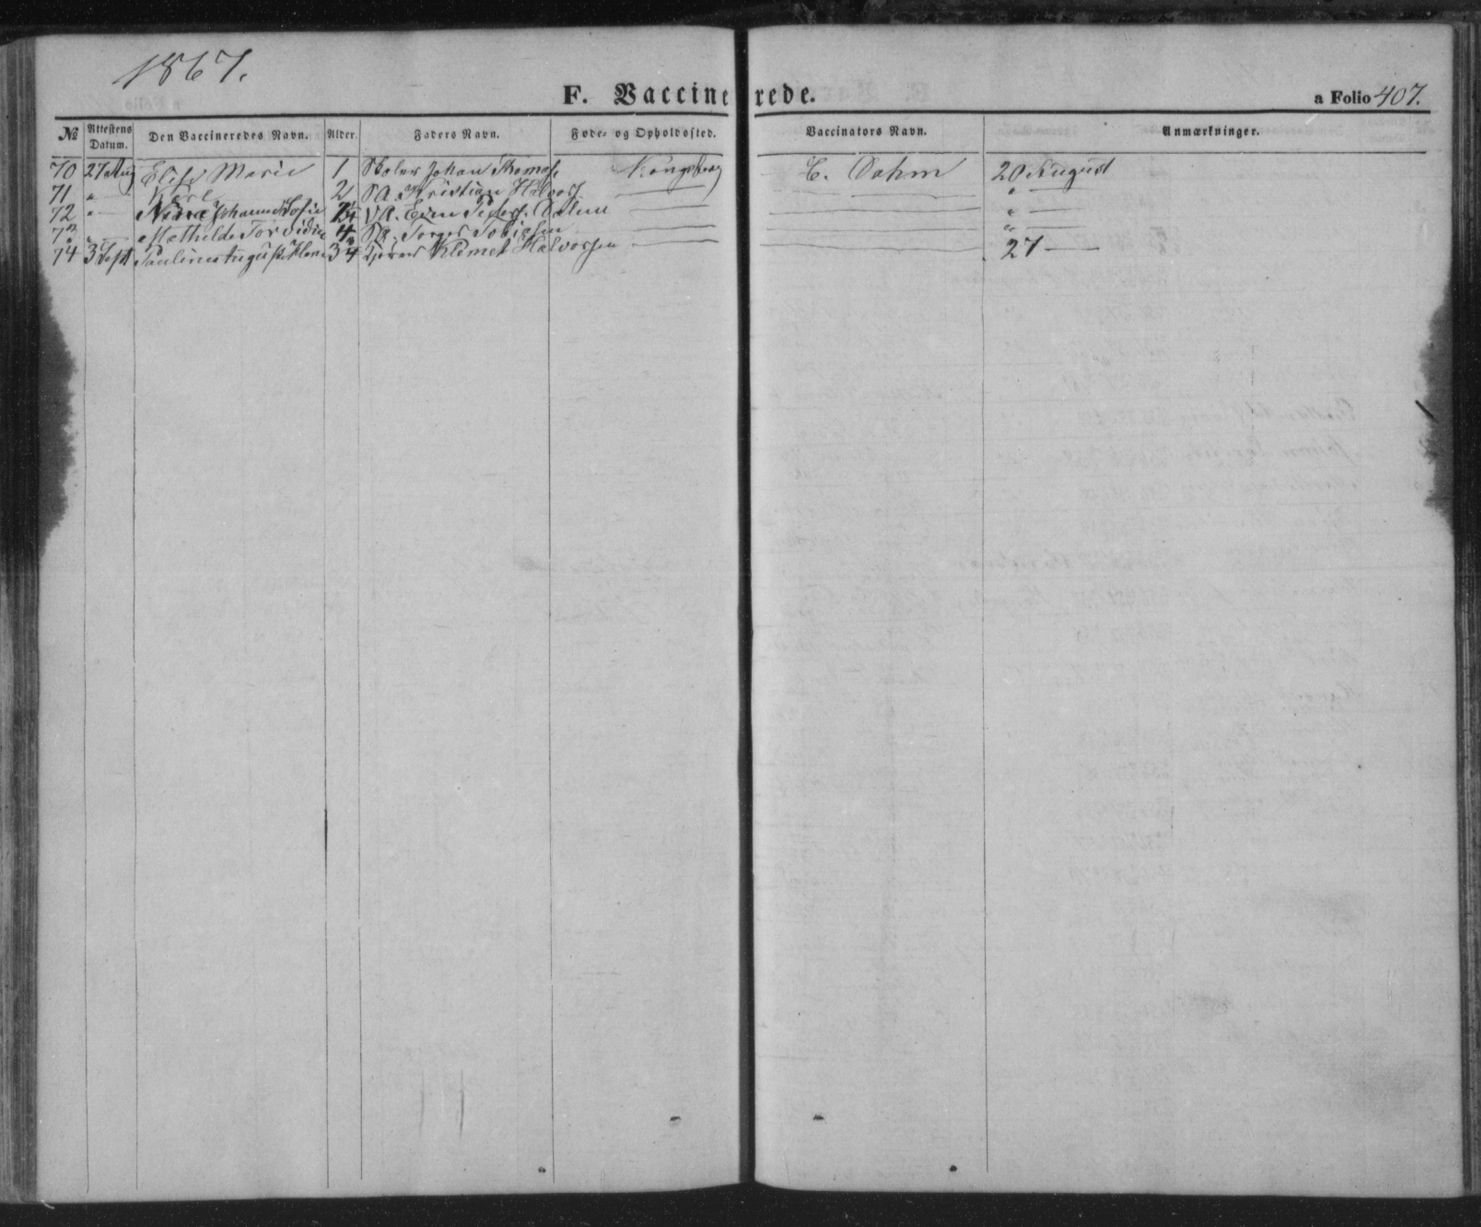 1867.
F. Vaccinerede.
a Folio 407.
№ Attestens Datum. Den Vaccineredes Navn. Alder. Faders Navn. Føde- og Opholdssted. Vaccinators Navn. Anmærkninger.
70 27 Aug Elise Marie 1 Johan Thomas. Kongsberg C. Dahm 20 August
71 " Karl 2 Kristian Halvors. — — " —
72 " Johanne Sofie Even Peders. — — " —
73 " Mathilde Torger Tobiesen — — " —
74 3 Sept Pauline Auguste 3/4 Klemet Halvorsen — — 27 —